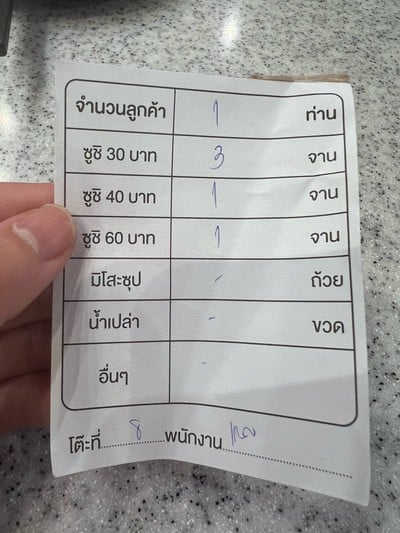 จำนวนลูกค้า 1 ท่าน
ซูชิ 30 บาท 3 จาน
ซูชิ 40 บาท 1 จาน
ซูชิ 60 บาท 1 จาน
มิโสะซุป - ถ้วย
น้ำเปล่า - ขวด
อื่นๆ -
โต๊ะที่ 8 พนักงาน